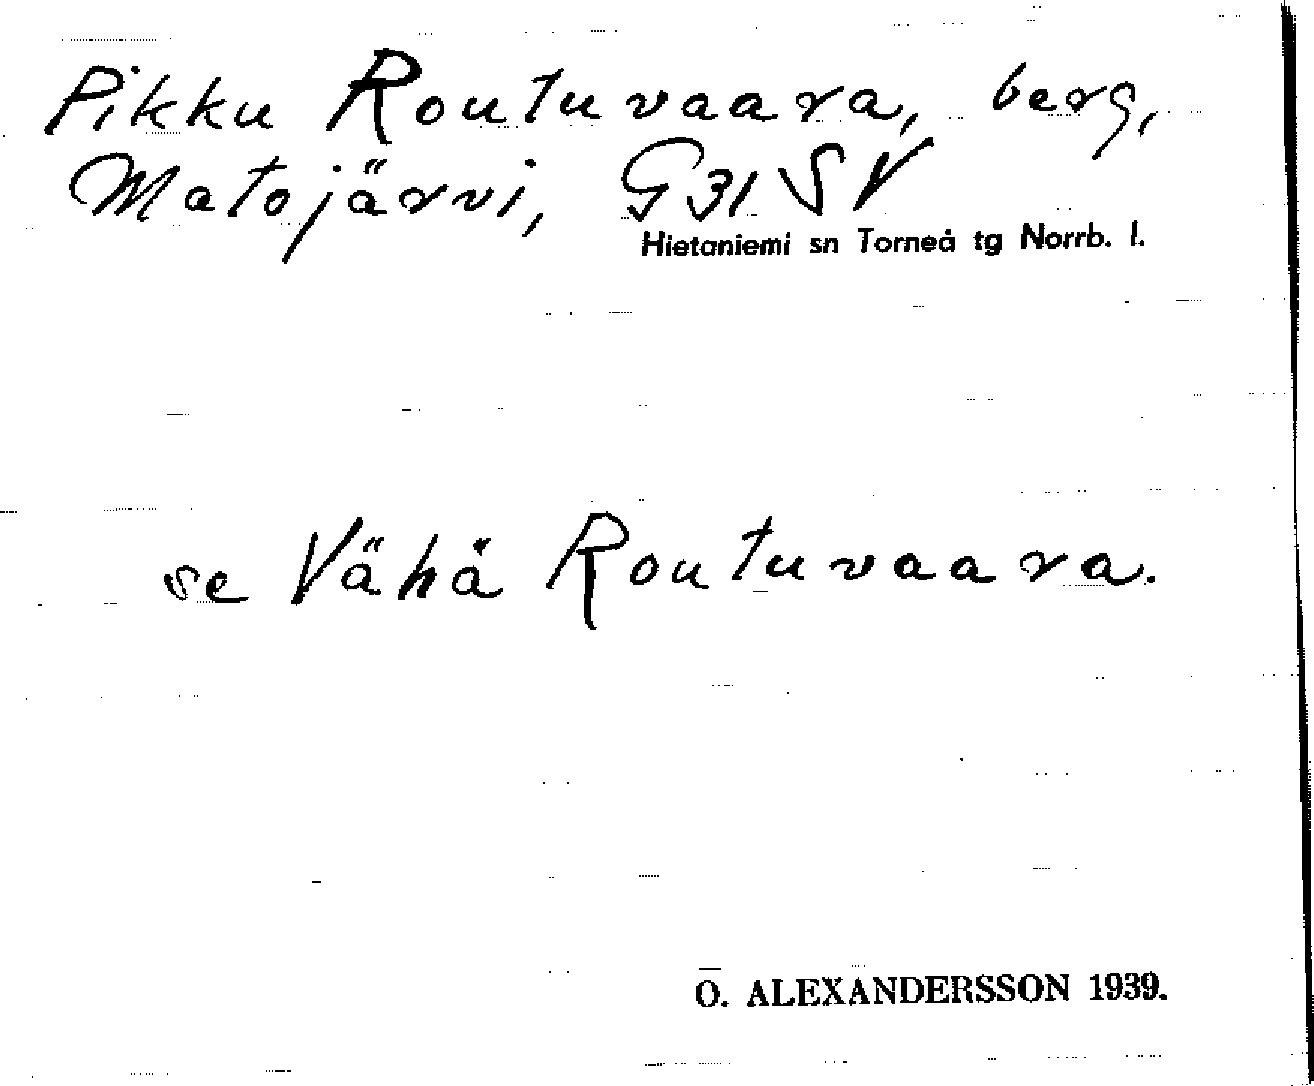 Pikku Routuvaara, berg,
Matojärvi, G31 SV
Hietaniemi sn Torneå tg Norrb. l.
se Vähä Routuvaara.
O. ALEXANDERSSON 1939.